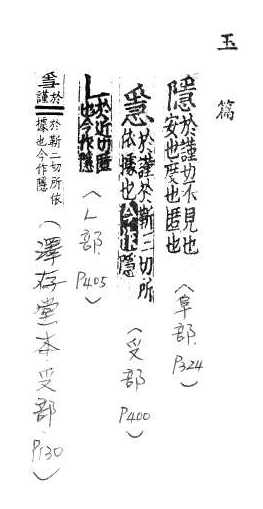 玉篇
隱 於謹切不見也
安也度也匿也
(阜部 P324)
㥯 於謹於靳二切所
依據也今作隱
(𠬪部 P400)
乚 於近切匿
也今作隱
(乚部 P405)
㥯 於謹於靳二切所依
據也今作隱
(澤存堂本.𠬪部.P130)